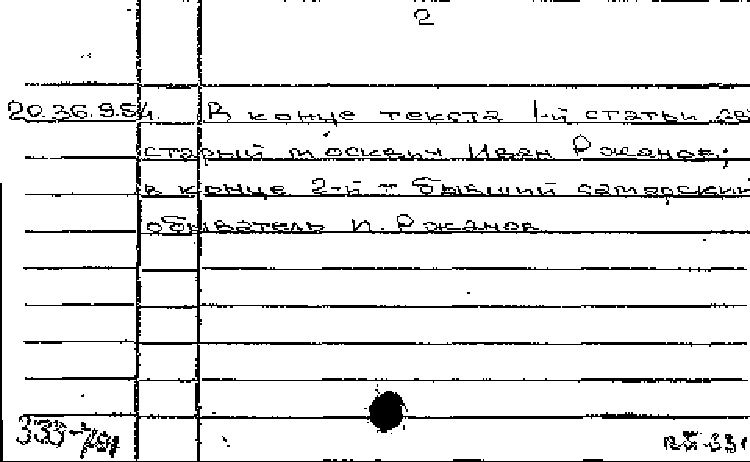 2
20.36.9.54. В конце текста 1-й статьи
старый москвич Иван Ржанов;
в конце 2-й - бывший самарский
обыватель И. Ржанов